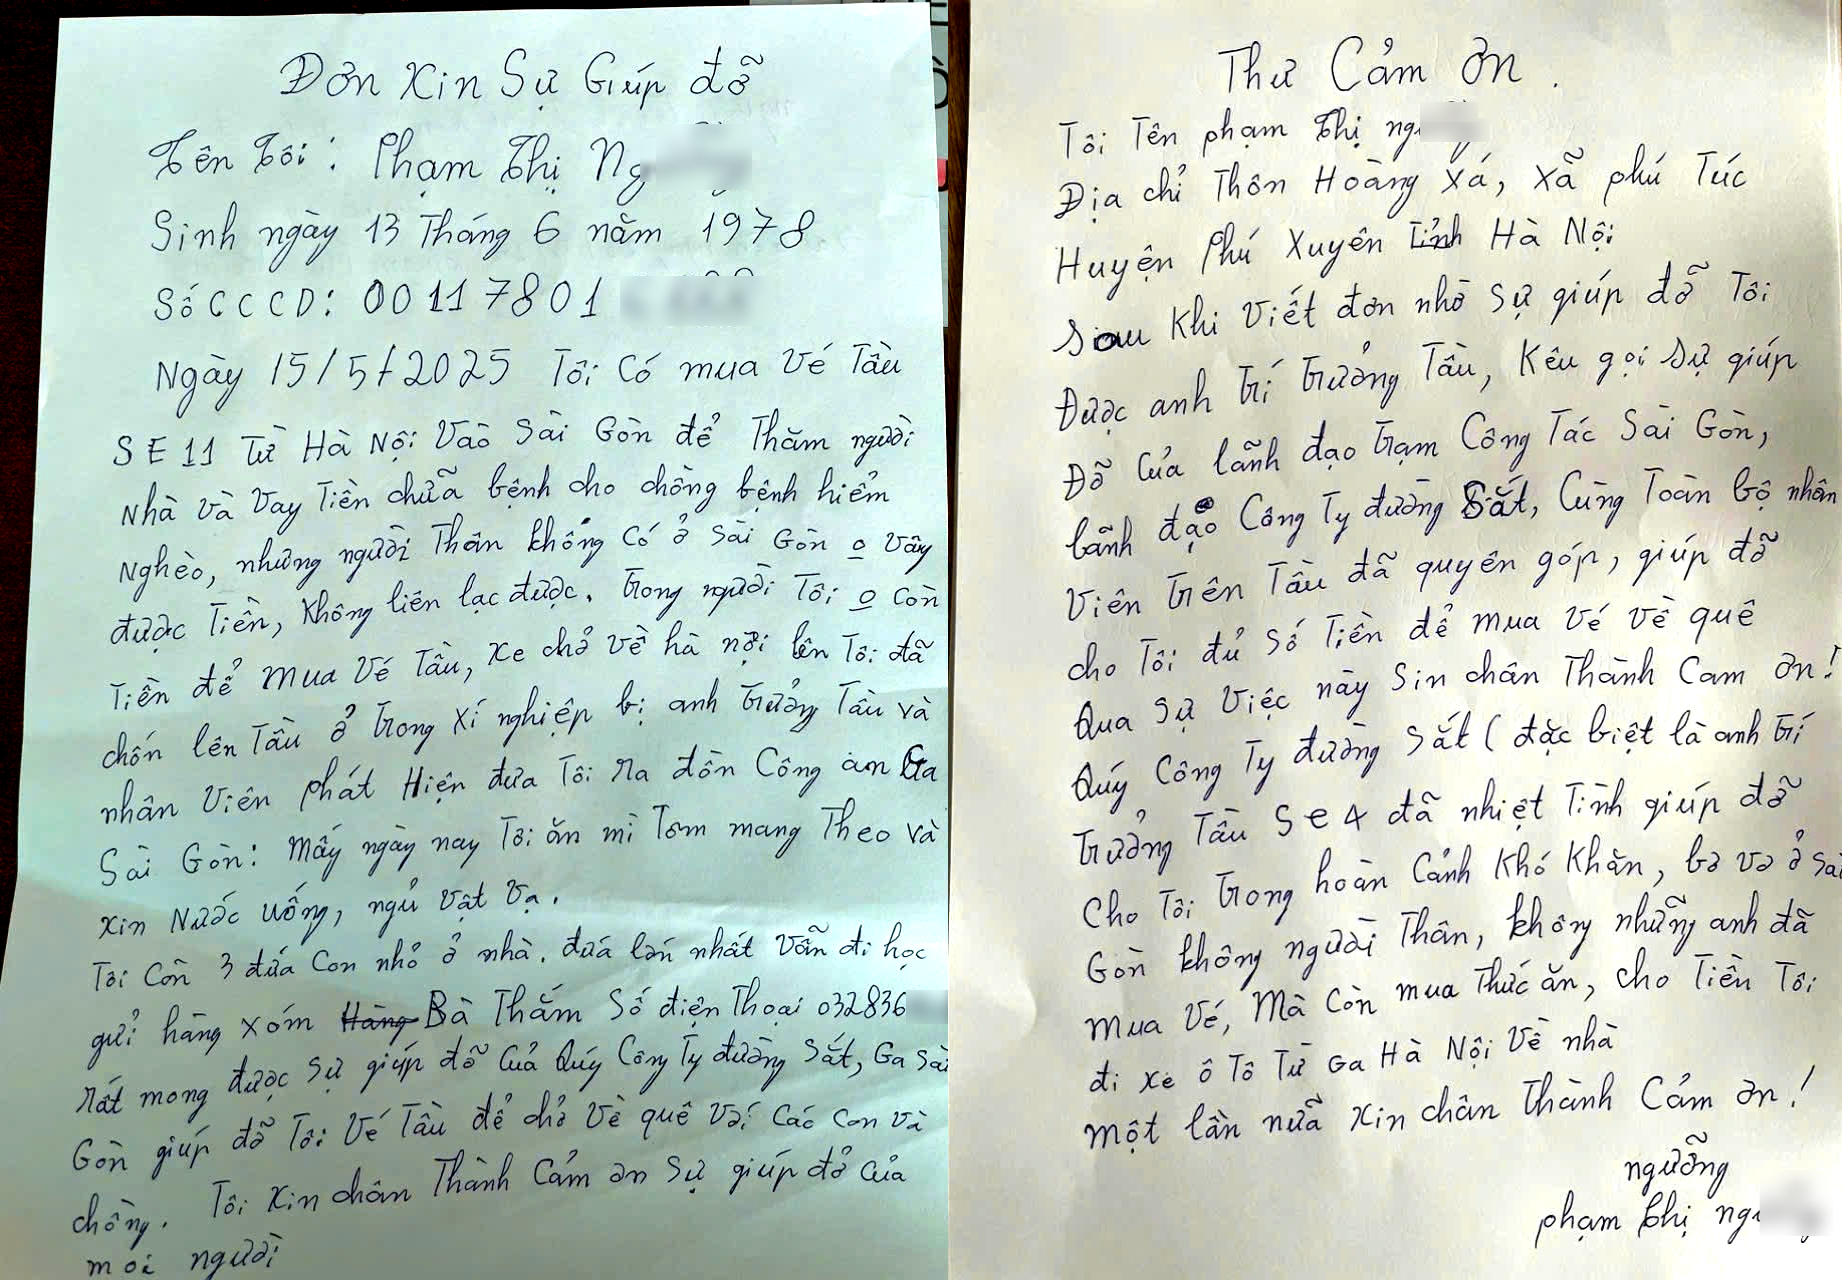 Đơn Xin Sự Giúp đỡ
Tên Tôi: Phạm Thị Ng
Sinh ngày 13 Tháng 6 năm 1978
Số CCCD: 00117801
Ngày 15/5/2025 Tôi Có mua Vé Tầu
SE11 Từ Hà Nội Vào Sài Gòn để Thăm người
Nhà và Vay Tiền chữa bệnh cho chồng bệnh hiểm
Nghèo, những người Thân không Có ở Sài Gòn o vây
được Tiền, Không liên lạc được. Trong người Tôi o Còn
Tiền để mua Vé Tầu, xe chở về hà nội lên Tôi đã
chốn lên Tầu ở Trong xí nghiệp bị anh Trưởng Tầu và
nhân Viên phát Hiện đưa Tôi ra đồn Công an Ga
Sài Gòn: Mấy ngày nay Tôi ăn mì Tôm mang Theo và
xin Nước uống, ngủ vật vạ.
Tôi Còn 3 đứa Con nhỏ ở nhà. đứa lớn nhất vẫn đi học
gửi hàng xóm Hàng Bà Thắm Số điện Thoại 032836
rất mong được sự giúp đỡ Của Quý Công Ty đường Sắt, Ga Sài
Gòn giúp đỡ Tôi Vé Tầu để chở Về quê Với Các Con và
chồng. Tôi xin chân Thành Cảm ơn Sự giúp đở Của
mọi người
Thư Cảm ơn.
Tôi Tên phạm Thị ng
Địa chỉ Thôn Hoàng Xá, Xã phú Túc
Huyện Phú Xuyên Tỉnh Hà Nội
Sau Khi Viết đơn nhờ Sự giúp đỡ Tôi
Được anh Trí Trưởng Tầu, Kêu gọi Sự giúp
Đỡ Của lãnh đạo Trạm Công Tác Sài Gòn,
lãnh đạo Công Ty đường Sắt, Cùng Toàn bộ nhân
Viên Trên Tầu đã quyên góp, giúp đỡ
cho Tôi đủ Số Tiền để mua Vé Về quê
Qua Sự Việc này Sin chân Thành Cam ơn!
Quý Công Ty đường Sắt (đặc biệt là anh Trí
Trưởng Tầu Se4 đã nhiệt Tình giúp đỡ
Cho Tôi Trong hoàn Cảnh Khó Khăn, bơ vơ ở Sài
Gòn không người Thân, không những anh đã
mua Vé, Mà Còn mua Thức ăn, cho Tiền Tôi
đi xe ô Tô Từ Ga Hà Nội Về nhà
Một lần nữa Xin chân Thành Cảm ơn!
ngưỡng
phạm Thị ng